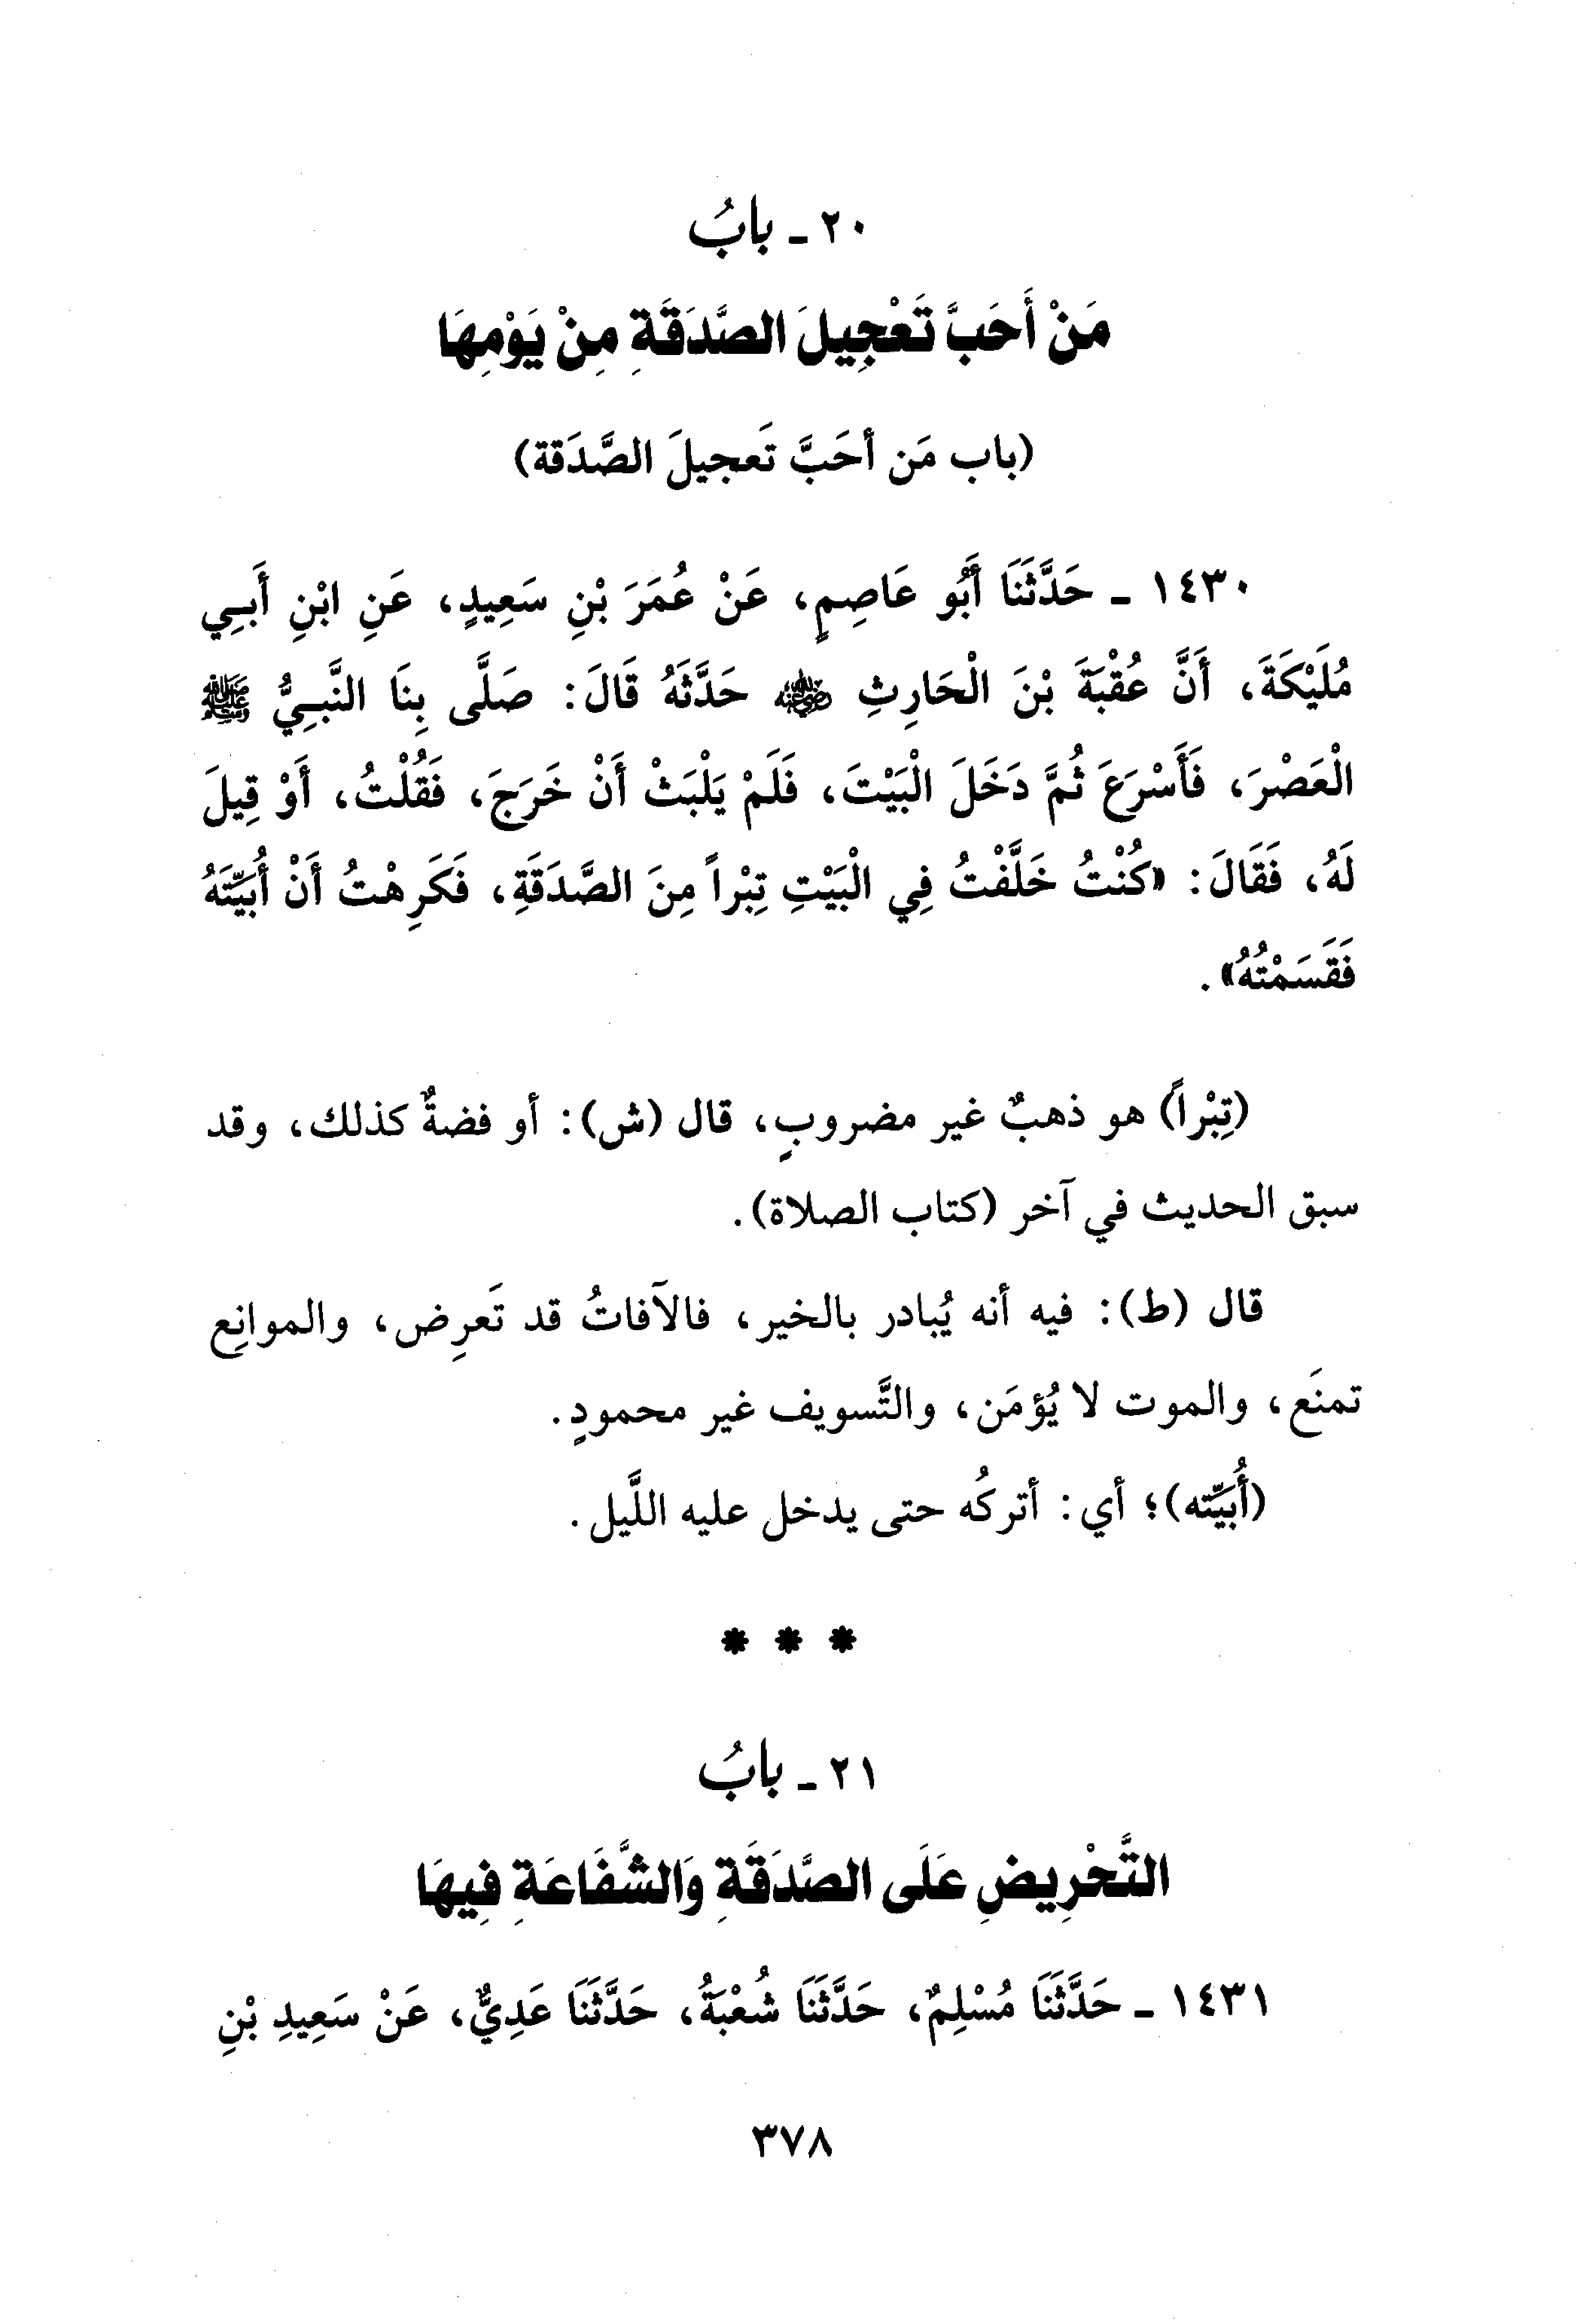 ٢٠ ـ بابُ
مَنْ أَحَبَّ تَعْجِيلَ الصَّدَقَةِ مِنْ يَوْمِهَا
(باب مَن أحَبَّ تَعجيلَ الصَّدَقة)
١٤٣٠ ـ حَدَّثَنَا أَبُو عَاصِمٍ، عَنْ عُمَرَ بْنِ سَعِيدٍ، عَنِ ابْنِ أَبِي
مُلَيْكَةَ، أَنَّ عُقْبَةَ بْنَ الْحَارِثِ رضي الله عنه حَدَّثَهُ قَالَ: صَلَّى بِنَا النَّبِيُّ ﷺ
الْعَصْرَ، فَأَسْرَعَ ثُمَّ دَخَلَ الْبَيْتَ، فَلَمْ يَلْبَثْ أَنْ خَرَجَ، فَقُلْتُ، أَوْ قِيلَ
لَهُ، فَقَالَ: «كُنْتُ خَلَّفْتُ فِي الْبَيْتِ تِبْراً مِنَ الصَّدَقَةِ، فَكَرِهْتُ أَنْ أُبَيِّتَهُ
فَقَسَمْتُهُ».
(تِبْراً) هو ذهبٌ غير مضروبٍ، قال (ش): أو فضةٌ كذلك، وقد
سبق الحديث في آخر (كتاب الصلاة).
قال (ط): فيه أنه يُبادر بالخير، فالآفاتُ قد تَعرِض، والموانِع
تمنَع، والموت لا يُؤمَن، والتَّسويف غير محمودٍ.
(أُبَيِّته)؛ أي: أتركُه حتى يدخل عليه اللَّيل.
* * *
٢١ ـ بابُ
التَّحْرِيضِ عَلَى الصَّدَقَةِ وَالشَّفَاعَةِ فِيهَا
١٤٣١ ـ حَدَّثَنَا مُسْلِمٌ، حَدَّثَنَا شُعْبَةُ، حَدَّثَنَا عَدِيٌّ، عَنْ سَعِيدِ بْنِ
٣٧٨